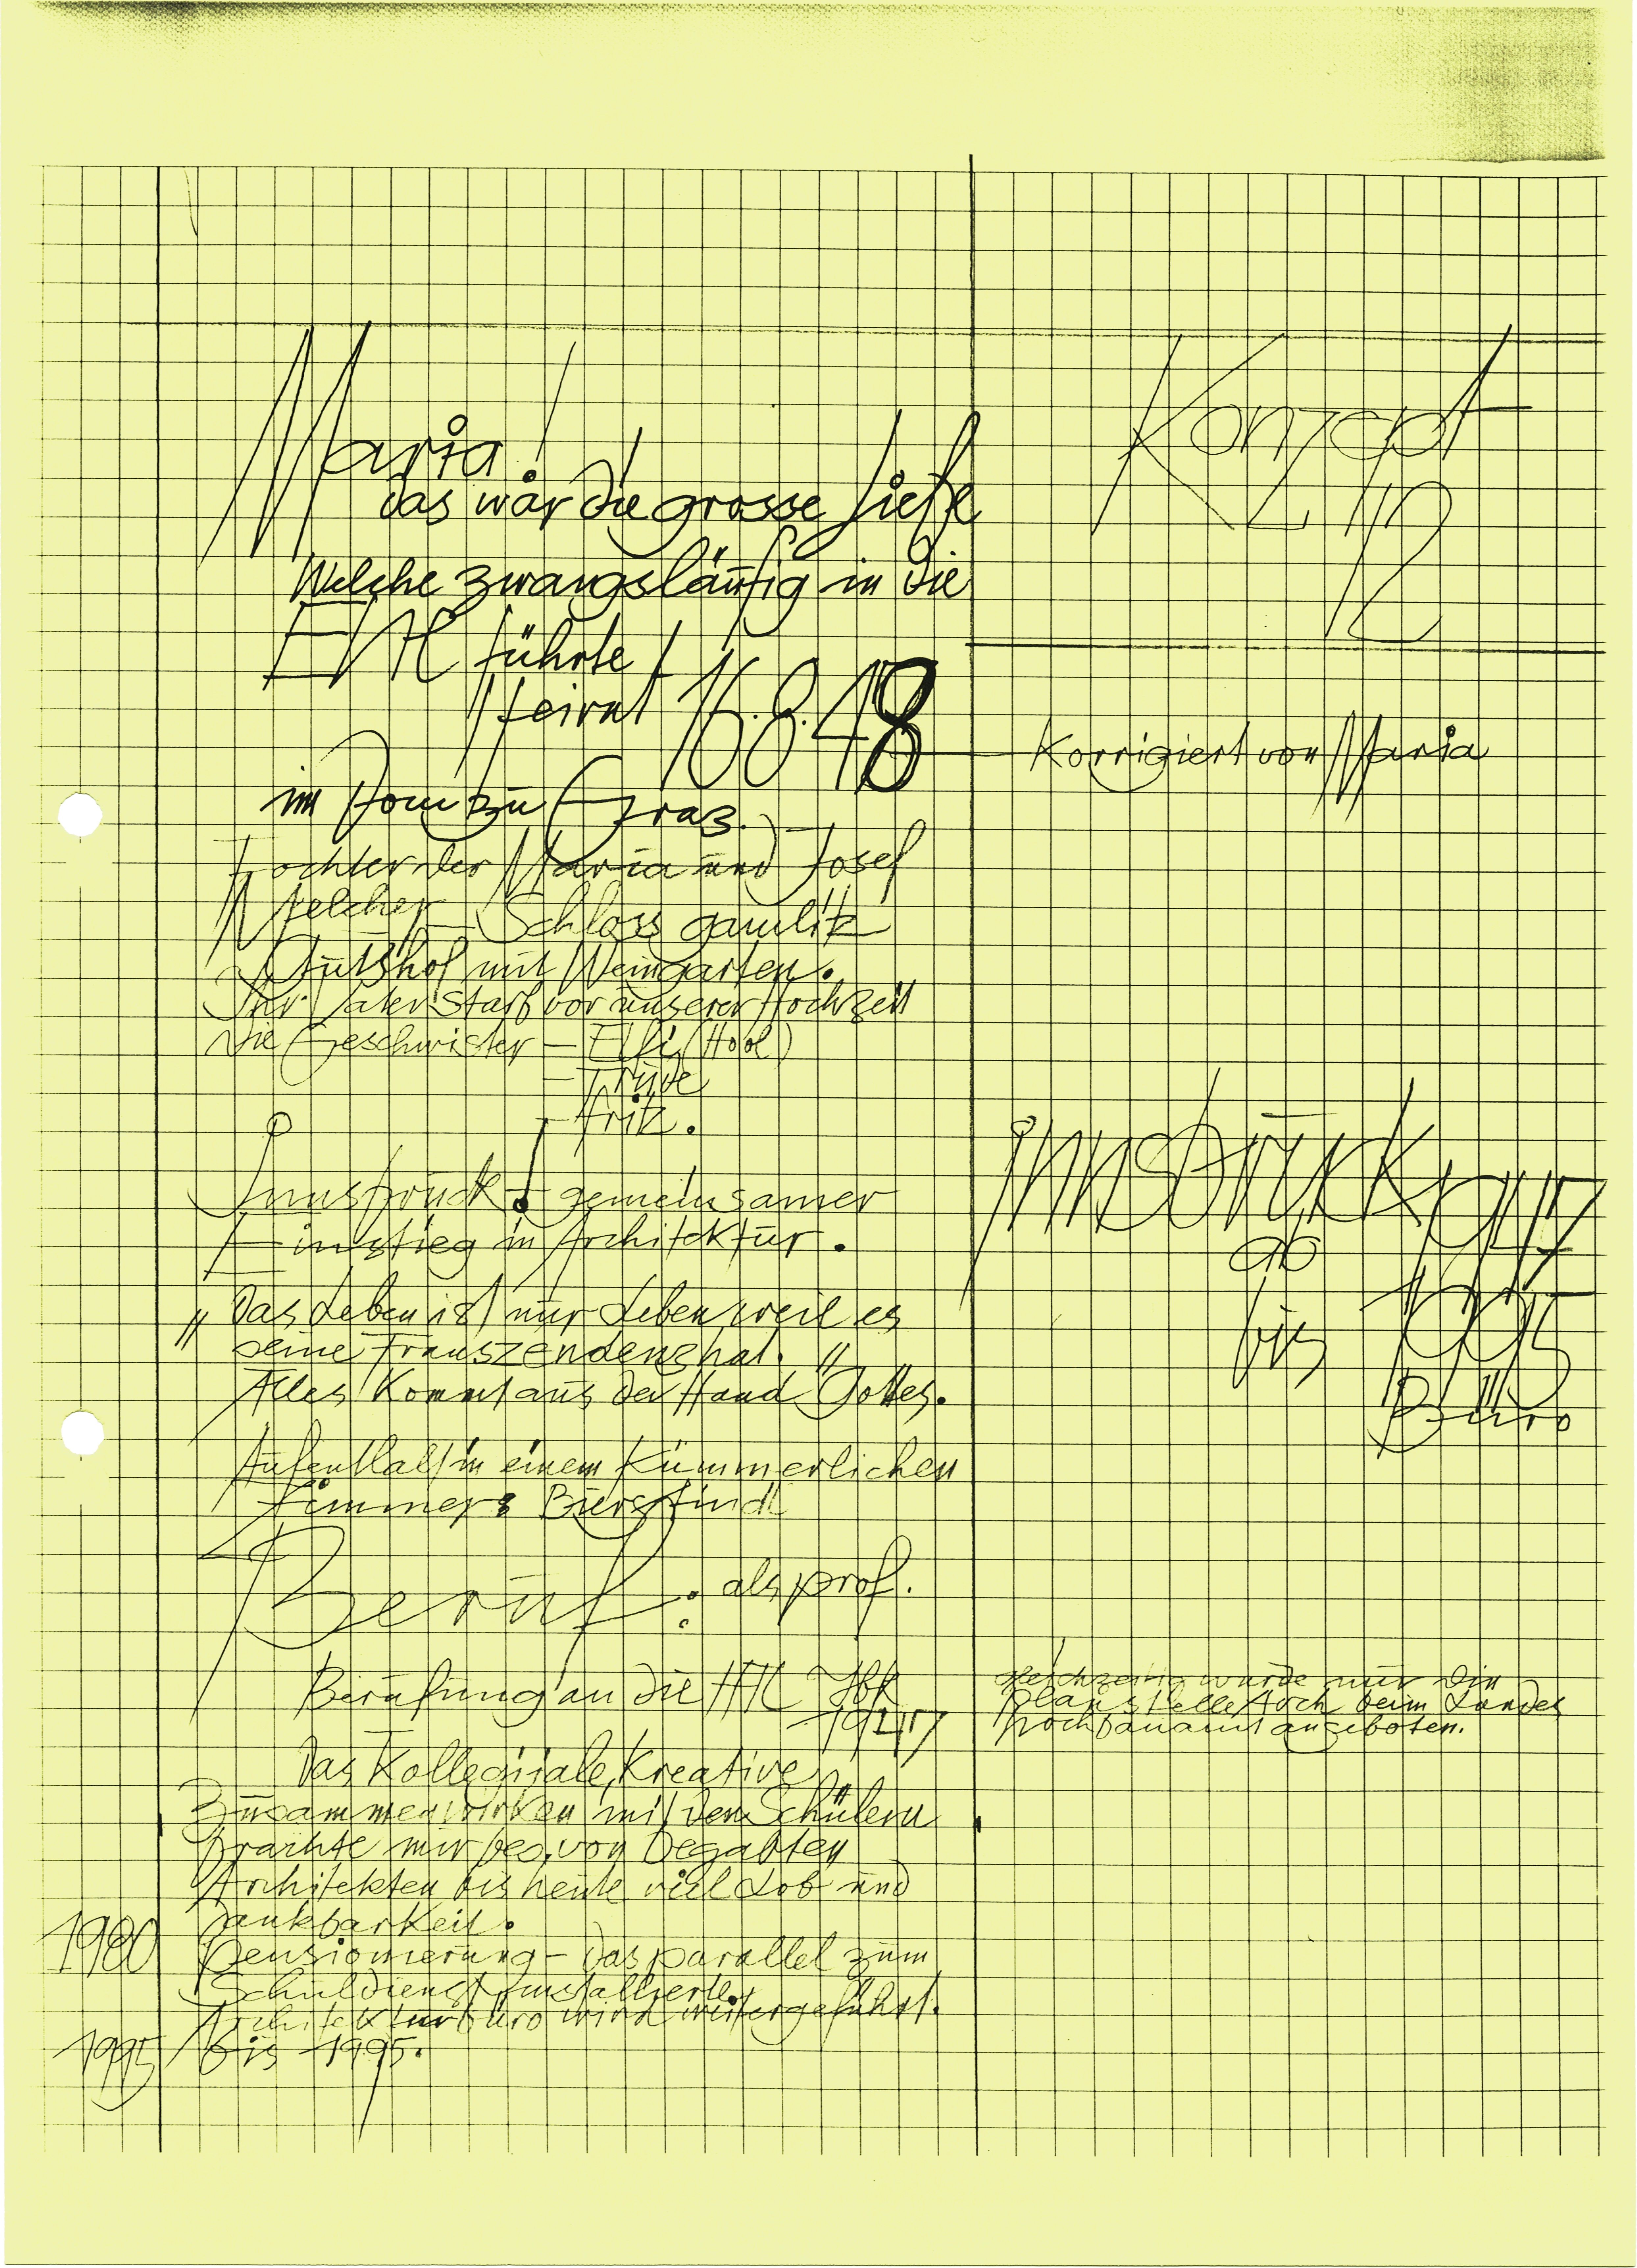 Konzept
12
Maria!
das war die grosse Liebe
Welche zwangsläufig in die
EHE führte!
Heirat 16.8.48
Korrigiert von Maria
im Dom zu Graz.
Tochter der Maria und Josef
Melcher Schloss gamlitz
Gutshof mit Weingarten.
Ihr Vater starb vor unserer Hochzeit
die Geschwister – Elfi (Hödl)
– Trude
– fritz.
Innsbruck! – gemeinsamer
Einstieg in Architektur.
innsbruck 1947
ab
bis 1995
Büro
"Das Leben ist nur Leben, weil es
seine Transzendenz hat."
Alles Kommt aus der Hand Gottes.
Aufenthalt in einem Kümmerlichen
Zimmer:
Beruf: als prof.
Berufung an die HTL Ibk
1947
gleichzeitig wurde mir die
planstelle Arch beim Landes
hochbauamt angeboten.
Das Kollegiale, Kreative
Zusammenwirken mit den Schülern
brachte mir bes. von begabten
Architekten bis heute viel Lob und
dankbarkeit.
1980 pensionierung – das parallel zum
Schuldienst installierte
Architekturbüro wird weitergeführt.
1995 bis 1995.